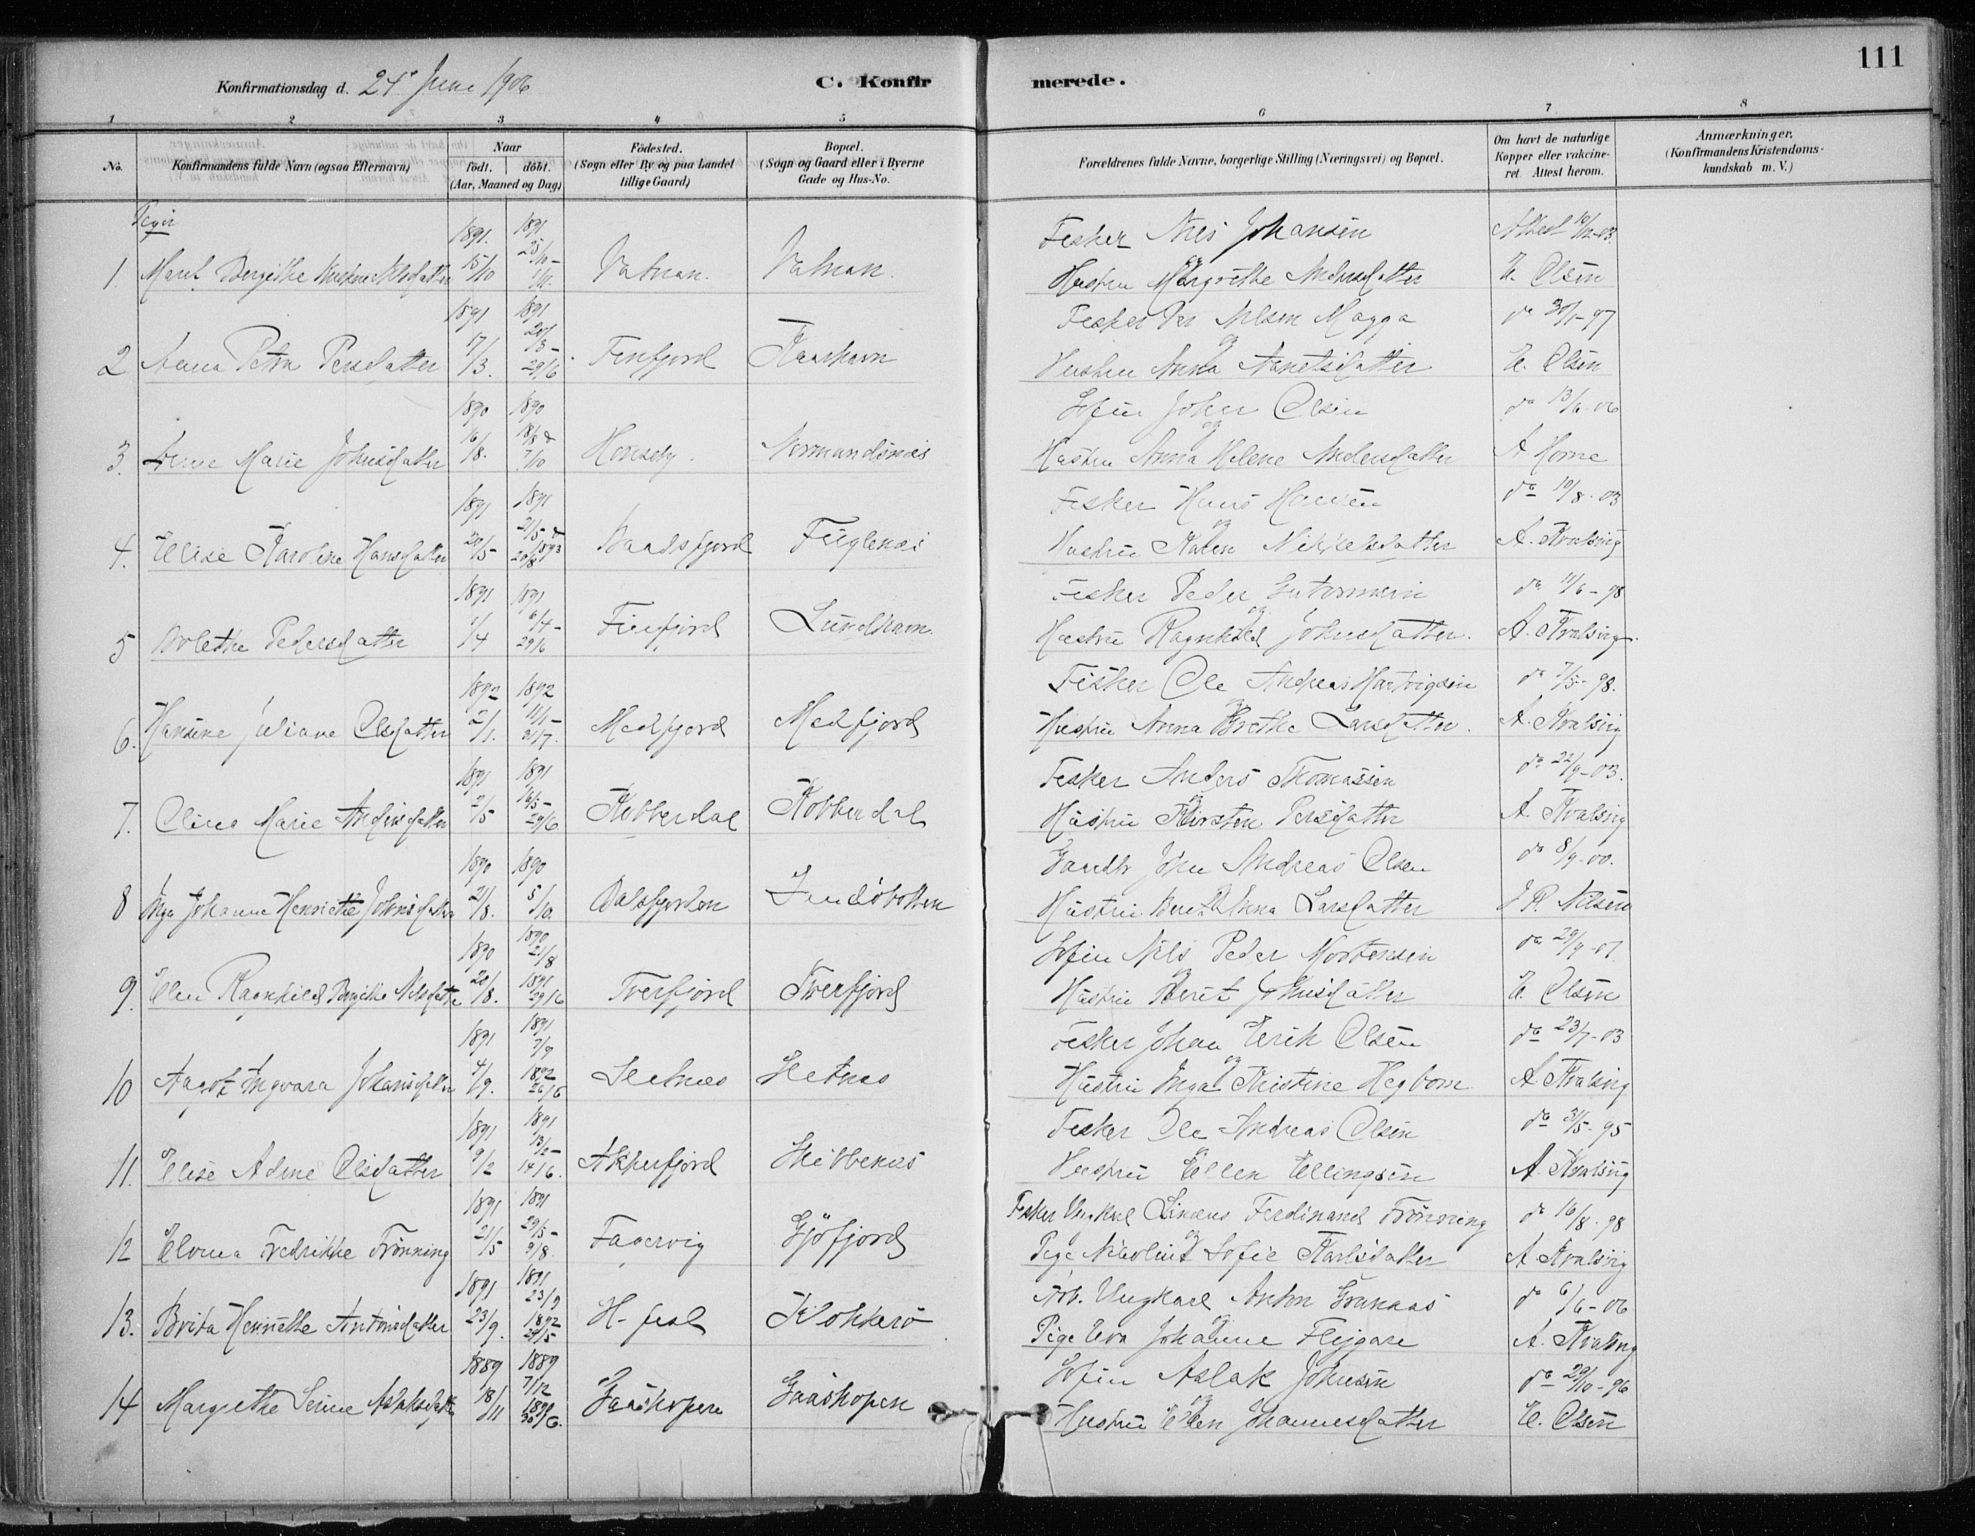 111
Konfirmationsdag d. 24 Juni 1906 C. Konfir merede.
1 2 3 4 5 6 7 8
No. Konfirmandens fulde Navn (ogsaa Efternavn) Naar født. døbt. (Aar, Maaned og Dag) Fødested. (Sogn eller By og paa Landet tillige Gaard) Bopæl. (Sogn og Gaard eller i Byerne Gade og Hus-No. Forældrenes fulde Navne, borgerlige Stilling (Næringsvei) og Bopæl. Om havt de naturlige Kopper eller vakcineret. Attest herom. Anmærkninger. (Konfirmandens Kristendomskundskab m. V.)
Piger
1891. 1891 Fisker Nils Johansen Attest
1. Marit Bergithe Nilsdatter 15/10 Vatnan. Vatnan. Hustru Margrethe Andersdatter E. Olsen
1891 1891 Fisker Per Nilsen Magga do 30/1-97
2 Anna Petra Persdatter 17/3. 29/6 Finfjord Kaarhavn Hustru Anna E. Olsen
1890 1890 Sofin John Olsen do 13/6-06
3. Marie Johnsdatter 16/8. 7/10 Hønseby. Normandsnes Hustru Anna Helene Andersdatter A Horne
1891 1891 Fisker Hans Hansen do 19/8-03
4. Elise Karoline Hansdatter 20/5 Baadsfjord Fuglenes Hustru Karen Nikkelsdatter A. Kvalsvig
1891 1891 Fisker Peder do 11/6-98
5 Pedersdatter 1/4 6/4- 29/6 Finfjord Lundhavn. Hustru Ragnhild Johnsdatter. A. Kvalsvig
1892 1892 Fisker Ole Andreas Hartvigsen do 7/5-98.
6. Hansine Juliane Olsdatter 2/1. Medfjord Medfjord Hustru Anna Brethe Larsdatter. A. Kvalsvig
1891 1891 Fisker Anders Thomassen do 22/9-03.
7. Marie Andersdatter 2/5 16/5- 29/6 Kobberdal Kobberdal Hustru Kirsten Persdatter A. Kvalsvig
1890 1890 John Andreas Olsen do 8/9-00.
8 Inga Johanne Henriethe Johnsdatter 2/8. 5/10. Dalsfjorden Sandøbotten Hustru Berit Anna Larsdatter J R. Nilsen
1890 1890 21/8 Sofin Nils Peder Mortensen do 29/9-01.
9. Elen Ragnhild Bergithe Nilsdatter 20/8. 1891 29/6 Tverfjord Tverfjord Hustru Berit Johnsdatter E. Olsen
1891 1891 7/9 Fisker Johan Erik Olsen do 23/7-03
10 Aagot Ingvara Johansdatter 4/9. 1892 26/6 Sletnes Sletnes Hustru Inga Kristine Hegbom A Kvalsvig
1891 1891 Fisker Ole Andreas Olsen do 3/5-95
11. Elise Adine Olsdatter 9/2 13/2- 14/6. Akkerfjord Skibbenes Hustru Ellen Ellingsen A. Kvalsvig
1891 1891 Fisker Ungkarl Linaus Ferdinand Trønning do 16/8-98
12 Elvina Fredrikke Trønning 21/5 29/5- 9/8. Fagervig Gjøfjord Pige Nikoline Sofie Karlsdatter A. Kvalsvig
1891 1891 23/9 Arb. Ungkarl Anton Grønnaas do 6/6-06
13. Brita Henriette Antonsdatter 23/9. 1892 29/5 H-fest Klokkerø Pige Eva Johanne Flygare A. Kvalsvig
1889 1889 7/12 Sofin Aslak Johnsen do 29/10-96
14 Margrethe Sinne Aslaksdatter 18/11 Gaashopen Gaashopen Hustru Ellen Johannesdatter E. Olsen